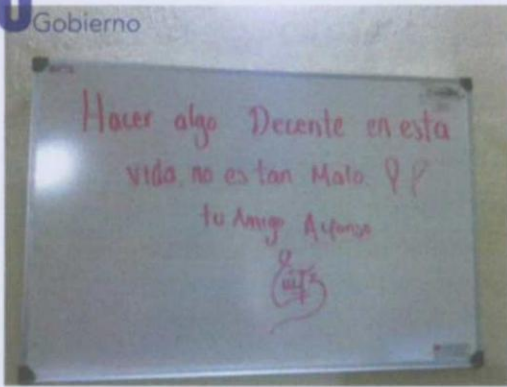 Gobierno
Hacer algo Decente en esta
vida, no es tan Malo.
tu Amigo Alfonso